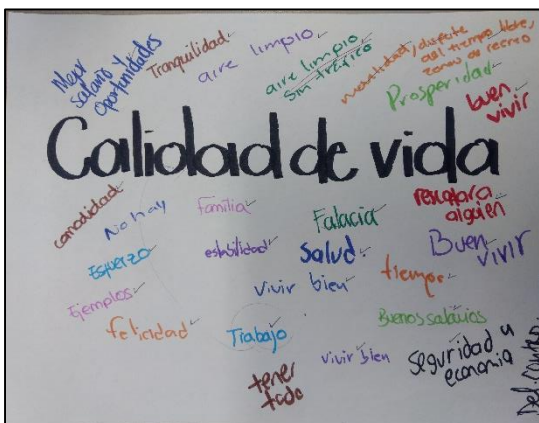 Mejor
salario y
oportunidades
Tranquilidad
aire limpio
aire limpio
sin tráfico
del tiempo libre,
zonas de recreo
Prosperidad
buen
vivir
Calidad de vida
comodidad
No hay
Familia
Falacia
rescatar a
alguien
Esfuerzo
estabilidad
Salud
Buen
vivir
Ejemplos
vivir bien
tiempo
felicidad
Trabajo
Buenos salarios
tener
todo
vivir bien
Seguridad y
economia